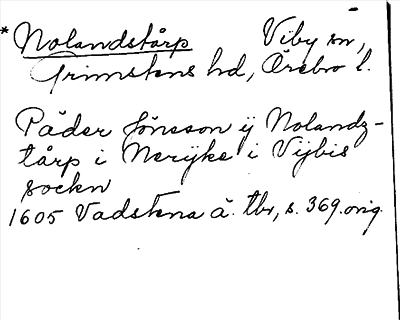 * Nolandstårp Viby sn,
Grimstens hd, Örebro l.
Påder Jönsson ij Nolandz-
tårp i Nerijke i Vijbis
sockn
1605 Vadstena ä. tbr, s. 369. orig.